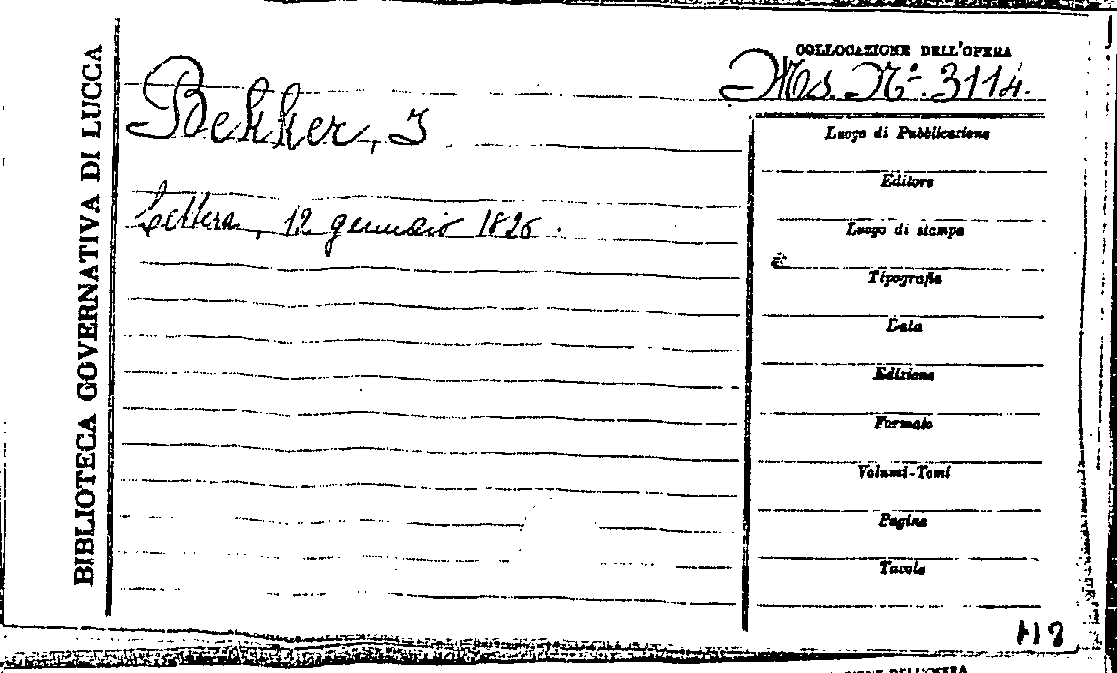 BIBLIOTECA GOVERNATIVA DI LUCCA
COLLOCAZIONE DELL'OPERA
Ms. N.º 3114.
Bekker, I
Lettera, 12 gennaio 1826.
Luogo di Pubblicazione
Editore
Luogo di stampa
Tipografia
Data
Edizione
Formato
Volumi-Tomi
Pagine
Tavole
DELL'OPERA